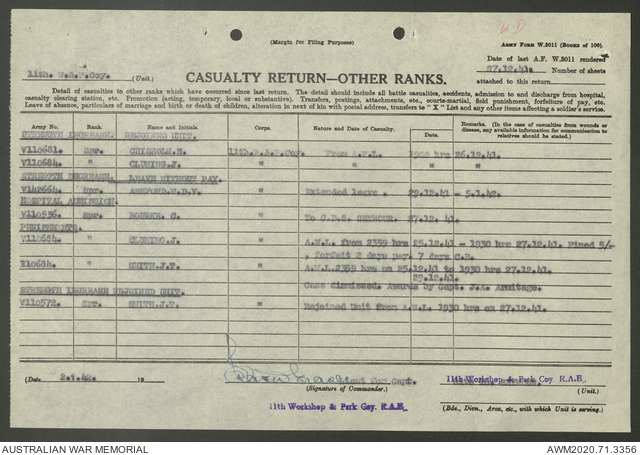 (Margin for Filing Purposes)
ARMY FORM W.3011 (BOOKS OF 100).
11th. Coy. (Unit.)
Date of last A.F. W.3011 rendered
27.12.41. Number of sheets
attached to this return
CASUALTY RETURN—OTHER RANKS.
Detail of casualties to other ranks which have occurred since last return. The detail should include all battle casualties, accidents, admission to and discharge from hospital,
casualty clearing station, etc. Promotion (acting, temporary, local or substantive). Transfers, postings, attachments, etc., courts-martial, field punishment, forfeiture of pay, etc.
Leave of absence, particulars of marriage and birth or death of children, alteration in next of kin with postal address, transfers to "X" List and any other items affecting a soldier's service.
Army No. Rank. Name and Initials. Corps. Nature and Date of Casualty. Date. Remarks. (In the case of casualties from wounds or disease, any available information for communication to relatives should be stated.)
STRENGTH INCREASE. REJOINED UNIT.
V110681. Spr. CHISHOLM. 11th. Coy. From A.W.L. hrs 26.12.41.
V110684. " J. " " " "
STRENGTH DECREASE. LEAVE WITHOUT PAY.
Spr. W.D.V. " Extended leave. 29.12.41 - 5.1.42.
HOSPITAL ADMISSION.
V110536. Spr. BOURKE. C. " To C.D.S. SEYMOUR. 27.12.41.
PUNISHMENTS.
V110684. " J. " A.W.L. from 2359 hrs 25.12.41 - 1930 hrs 27.12.41. Fined 5/-
, forfeit 2 days pay. 7 days C.B.
" SMITH.J.F. " A.W.L. 2359 hrs on 25.12.41 to 1930 hrs 27.12.41.
29.12.41.
Case dismissed. Awards by Capt. J.A. Armitage.
STRENGTH INCREASE REJOINED UNIT.
V110572. Spr. SMITH.J.F. " Rejoined Unit from A.W.L. 1930 hrs on 27.12.41.
(Date 2.1.42. 19 ) Lieut for Capt. 11th Workshop & Park Coy. R.A.E.
(Signature of Commander.) (Unit.)
11th Workshop & Park Coy. R.A.E.
(Bde., Divn., Area, etc., with which Unit is serving.)
AUSTRALIAN WAR MEMORIAL AWM2020.71.3356